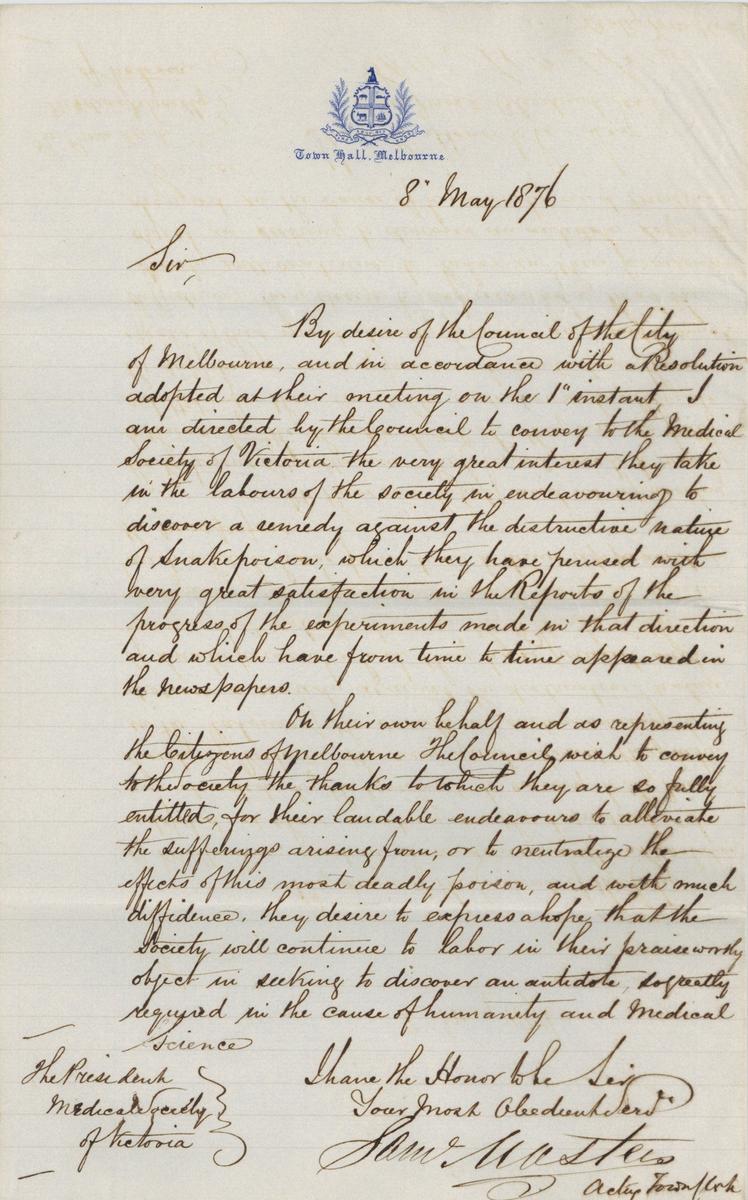 Town Hall, Melbourne
8" May 1876
Sir,
By desire of the Council of the City
of Melbourne, and in accordance with a Resolution
adopted at their meeting on the 1st instant, I
am directed by the Council to convey to the Medical
Society of Victoria the very great interest they take
in the labours of the society in endeavouring to
discover a remedy against the distructive nature
of Snake poison, which they have perused with
very great satisfaction in the Reports of the
progress of the experiments made in that direction
and which have from time to time appeared in
the newspapers.
On their own behalf and as representing
the Citizens of Melbourne The Council wish to convey
to the Society the thanks to which they are so fully
entitled, for their laudable endeavours to alleviate
the sufferings arising from, or to neutralize the
effects of this most deadly poison, and with much
diffidence, they desire to express a hope that the
Society will continue to labor in their praiseworthy
object in seeking to discover an antidote, so greatly
required in the cause of humanity and Medical
Science
I have the Honor to be Sir
Your Most Obedient Servt
The President
Medical Society
of Victoria
Saml
Actg Town Clerk